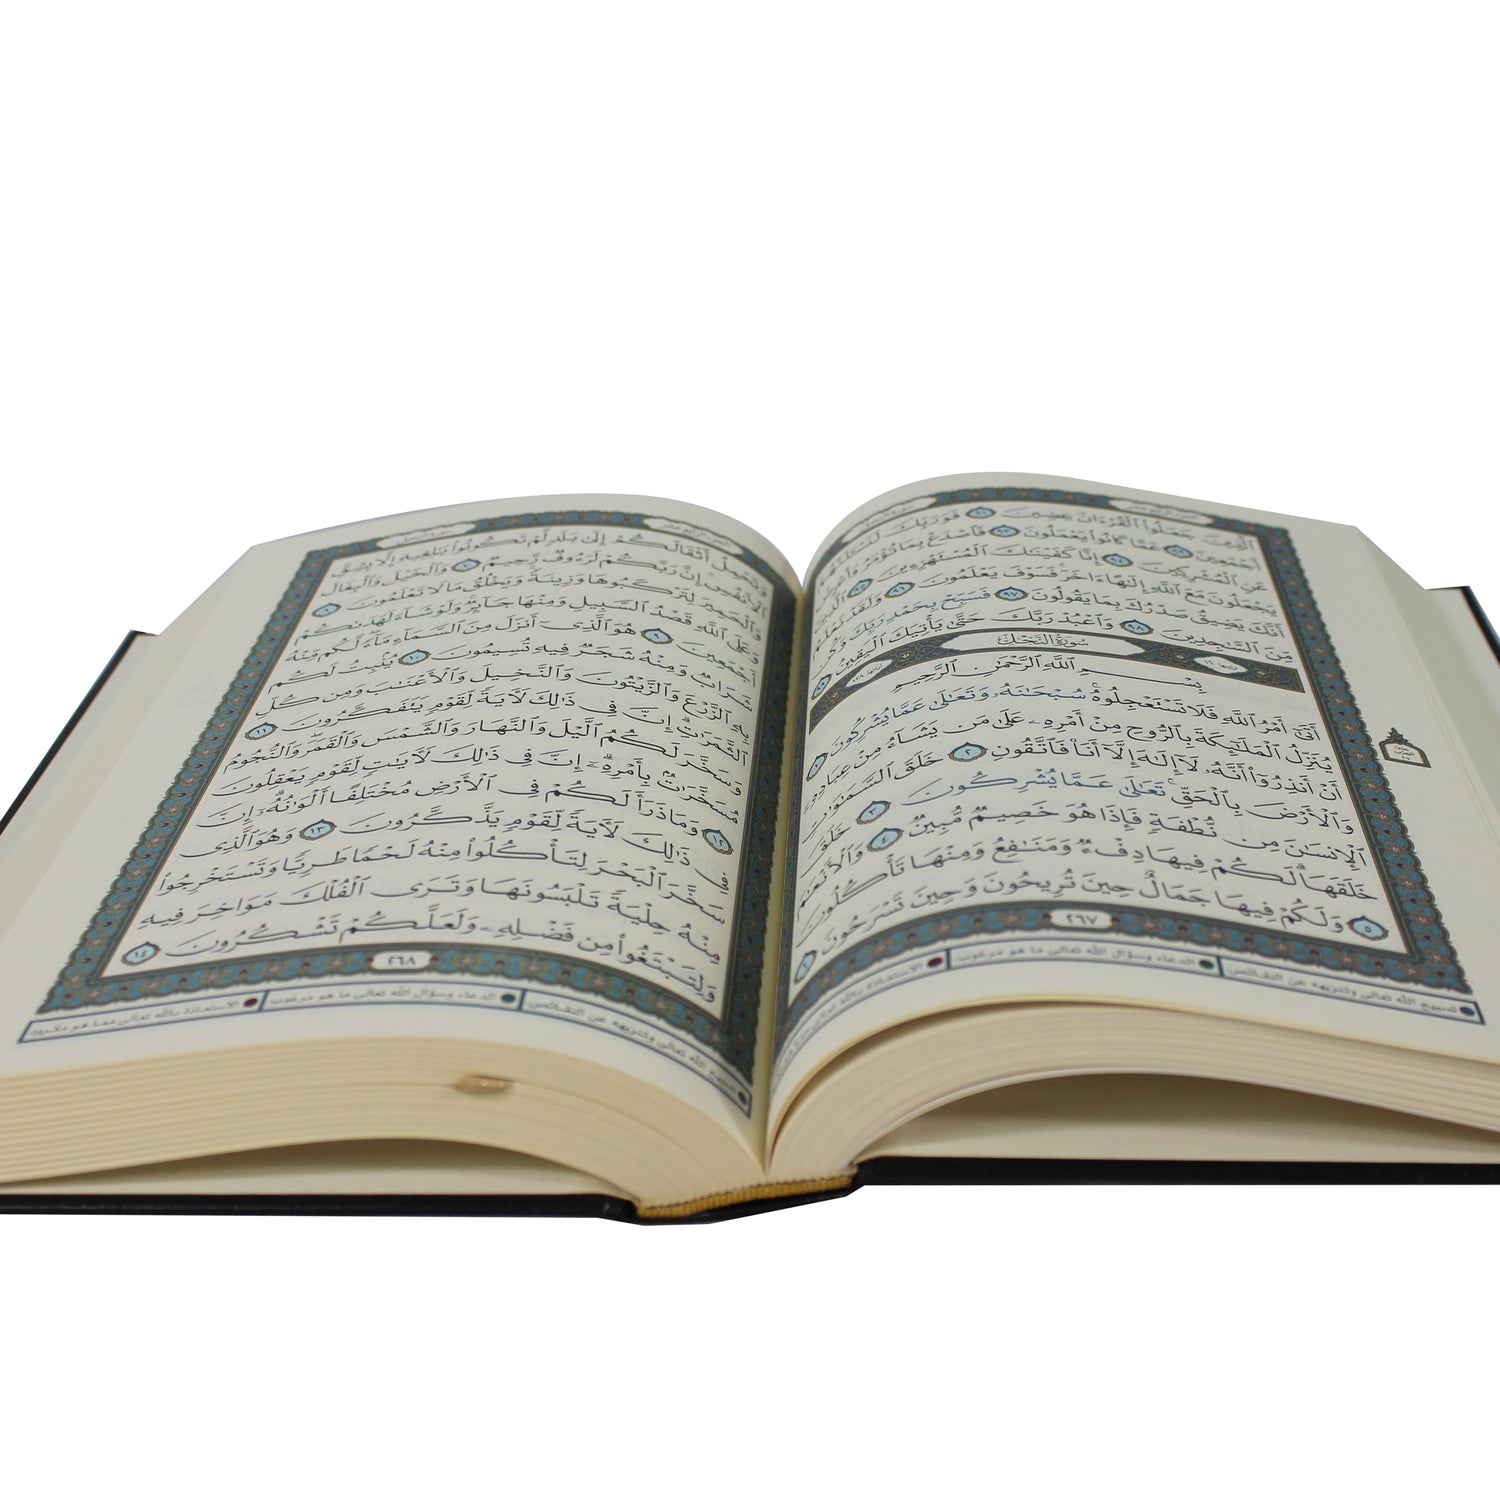 الجزء الرابع عشر
سورة الحجر
ٱلَّذِينَ جَعَلُوا۟ ٱلْقُرْءَانَ عِضِينَ ٩١ فَوَرَبِّكَ لَنَسْـَٔلَنَّهُمْ
أَجْمَعِينَ ٩٢ عَمَّا كَانُوا۟ يَعْمَلُونَ ٩٣ فَٱصْدَعْ بِمَا تُؤْمَرُ وَأَعْرِضْ
عَنِ ٱلْمُشْرِكِينَ ٩٤ إِنَّا كَفَيْنَـٰكَ ٱلْمُسْتَهْزِءِينَ ٩٥ ٱلَّذِينَ
يَجْعَلُونَ مَعَ ٱللَّهِ إِلَـٰهًا ءَاخَرَ ۚ فَسَوْفَ يَعْلَمُونَ ٩٦ وَلَقَدْ نَعْلَمُ
أَنَّكَ يَضِيقُ صَدْرُكَ بِمَا يَقُولُونَ ٩٧ فَسَبِّحْ بِحَمْدِ رَبِّكَ وَكُن
مِّنَ ٱلسَّـٰجِدِينَ ٩٨ وَٱعْبُدْ رَبَّكَ حَتَّىٰ يَأْتِيَكَ ٱلْيَقِينُ ٩٩
ترتيبها ١٦ سُورَةُ النَّحْلِ آياتها ١٢٨
بِسْمِ ٱللَّهِ ٱلرَّحْمَـٰنِ ٱلرَّحِيمِ
أَتَىٰٓ أَمْرُ ٱللَّهِ فَلَا تَسْتَعْجِلُوهُ ۚ سُبْحَـٰنَهُۥ وَتَعَـٰلَىٰ عَمَّا يُشْرِكُونَ ١
يُنَزِّلُ ٱلْمَلَـٰٓئِكَةَ بِٱلرُّوحِ مِنْ أَمْرِهِۦ عَلَىٰ مَن يَشَآءُ مِنْ عِبَادِهِۦٓ
أَنْ أَنذِرُوٓا۟ أَنَّهُۥ لَآ إِلَـٰهَ إِلَّآ أَنَا۠ فَٱتَّقُونِ ٢ خَلَقَ ٱلسَّمَـٰوَٰتِ
وَٱلْأَرْضَ بِٱلْحَقِّ ۚ تَعَـٰلَىٰ عَمَّا يُشْرِكُونَ ٣ خَلَقَ
ٱلْإِنسَـٰنَ مِن نُّطْفَةٍ فَإِذَا هُوَ خَصِيمٌ مُّبِينٌ ٤ وَٱلْأَنْعَـٰمَ
خَلَقَهَا ۗ لَكُمْ فِيهَا دِفْءٌ وَمَنَـٰفِعُ وَمِنْهَا تَأْكُلُونَ
٥ وَلَكُمْ فِيهَا جَمَالٌ حِينَ تُرِيحُونَ وَحِينَ تَسْرَحُونَ ٦
٢٦٧
تسبيح الله تعالى وتنزيهه عن النقائص
الدعاء وسؤال الله تعالى ما هو مرغوب
الاستعاذة بالله تعالى
الجزء الرابع عشر
سورة النحل
وَتَحْمِلُ أَثْقَالَكُمْ إِلَىٰ بَلَدٍ لَّمْ تَكُونُوا۟ بَـٰلِغِيهِ إِلَّا بِشِقِّ
ٱلْأَنفُسِ ۚ إِنَّ رَبَّكُمْ لَرَءُوفٌ رَّحِيمٌ ٧ وَٱلْخَيْلَ وَٱلْبِغَالَ
وَٱلْحَمِيرَ لِتَرْكَبُوهَا وَزِينَةً ۚ وَيَخْلُقُ مَا لَا تَعْلَمُونَ ٨
وَعَلَى ٱللَّهِ قَصْدُ ٱلسَّبِيلِ وَمِنْهَا جَآئِرٌ ۚ وَلَوْ شَآءَ لَهَدَىٰكُمْ
أَجْمَعِينَ ٩ هُوَ ٱلَّذِىٓ أَنزَلَ مِنَ ٱلسَّمَآءِ مَآءً ۖ لَّكُم مِّنْهُ
شَرَابٌ وَمِنْهُ شَجَرٌ فِيهِ تُسِيمُونَ ١٠ يُنۢبِتُ لَكُم
بِهِ ٱلزَّرْعَ وَٱلزَّيْتُونَ وَٱلنَّخِيلَ وَٱلْأَعْنَـٰبَ وَمِن كُلِّ
ٱلثَّمَرَٰتِ ۗ إِنَّ فِى ذَٰلِكَ لَـَٔايَةً لِّقَوْمٍ يَتَفَكَّرُونَ ١١
وَسَخَّرَ لَكُمُ ٱلَّيْلَ وَٱلنَّهَارَ وَٱلشَّمْسَ وَٱلْقَمَرَ ۖ وَٱلنُّجُومُ
مُسَخَّرَٰتٌۢ بِأَمْرِهِۦٓ ۗ إِنَّ فِى ذَٰلِكَ لَـَٔايَـٰتٍ لِّقَوْمٍ يَعْقِلُونَ
١٢ وَمَا ذَرَأَ لَكُمْ فِى ٱلْأَرْضِ مُخْتَلِفًا أَلْوَٰنُهُۥٓ ۗ إِنَّ
فِى ذَٰلِكَ لَـَٔايَةً لِّقَوْمٍ يَذَّكَّرُونَ ١٣ وَهُوَ ٱلَّذِى
سَخَّرَ ٱلْبَحْرَ لِتَأْكُلُوا۟ مِنْهُ لَحْمًا طَرِيًّا وَتَسْتَخْرِجُوا۟
مِنْهُ حِلْيَةً تَلْبَسُونَهَا وَتَرَى ٱلْفُلْكَ مَوَاخِرَ فِيهِ
وَلِتَبْتَغُوا۟ مِن فَضْلِهِۦ وَلَعَلَّكُمْ تَشْكُرُونَ ١٤
٢٦٨
تسبيح الله تعالى وتنزيهه عن النقائص
الدعاء وسؤال الله تعالى ما هو مرغوب
الاستعاذة بالله تعالى مما هو مكروه